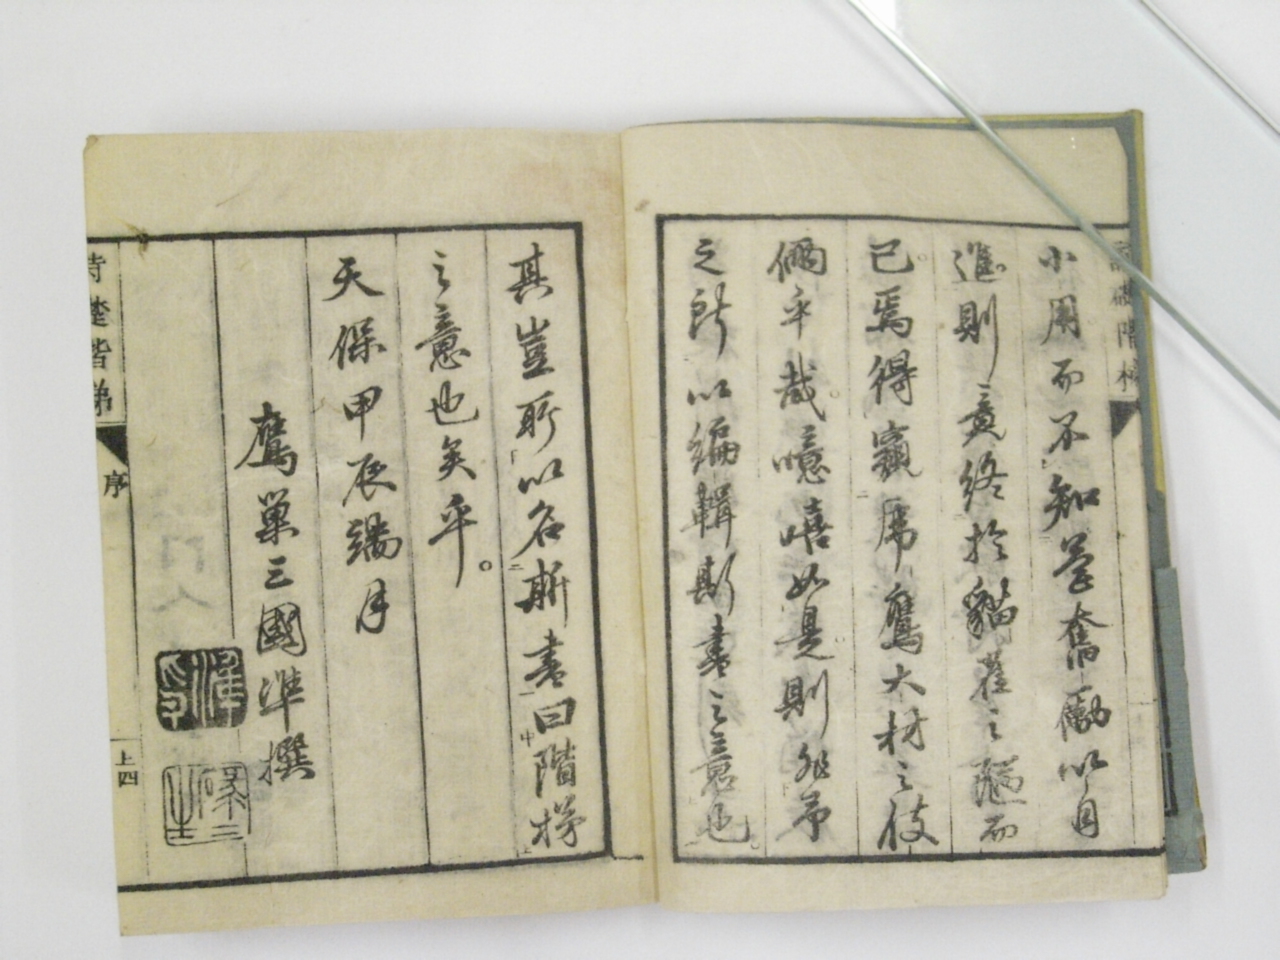 小用而不知營奮勵以自
進則竟終於貓雀之陋而
已焉得窺虎鷹大材之伎
倆乎哉噫嘻如是則非予
之所以編輯斯書之意也
其豈所以名斯書曰階梯
之意也矣乎。
天保甲辰端月
鷹巢三國準撰
詩礎階梯
序
上四